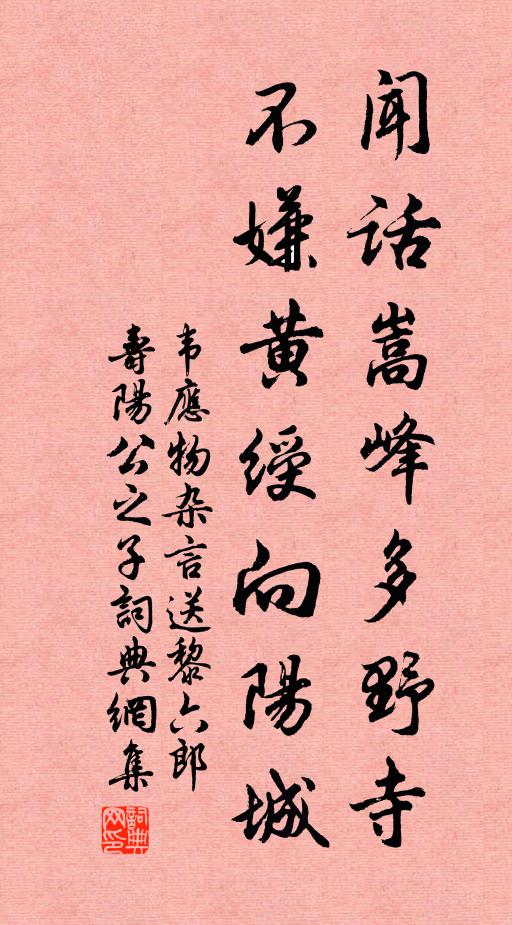 闻话嵩峰多野寺
不嫌黄绶向陽城
韦應物杂言送黎六郎
壽陽公之子詞典網集
詞典网印